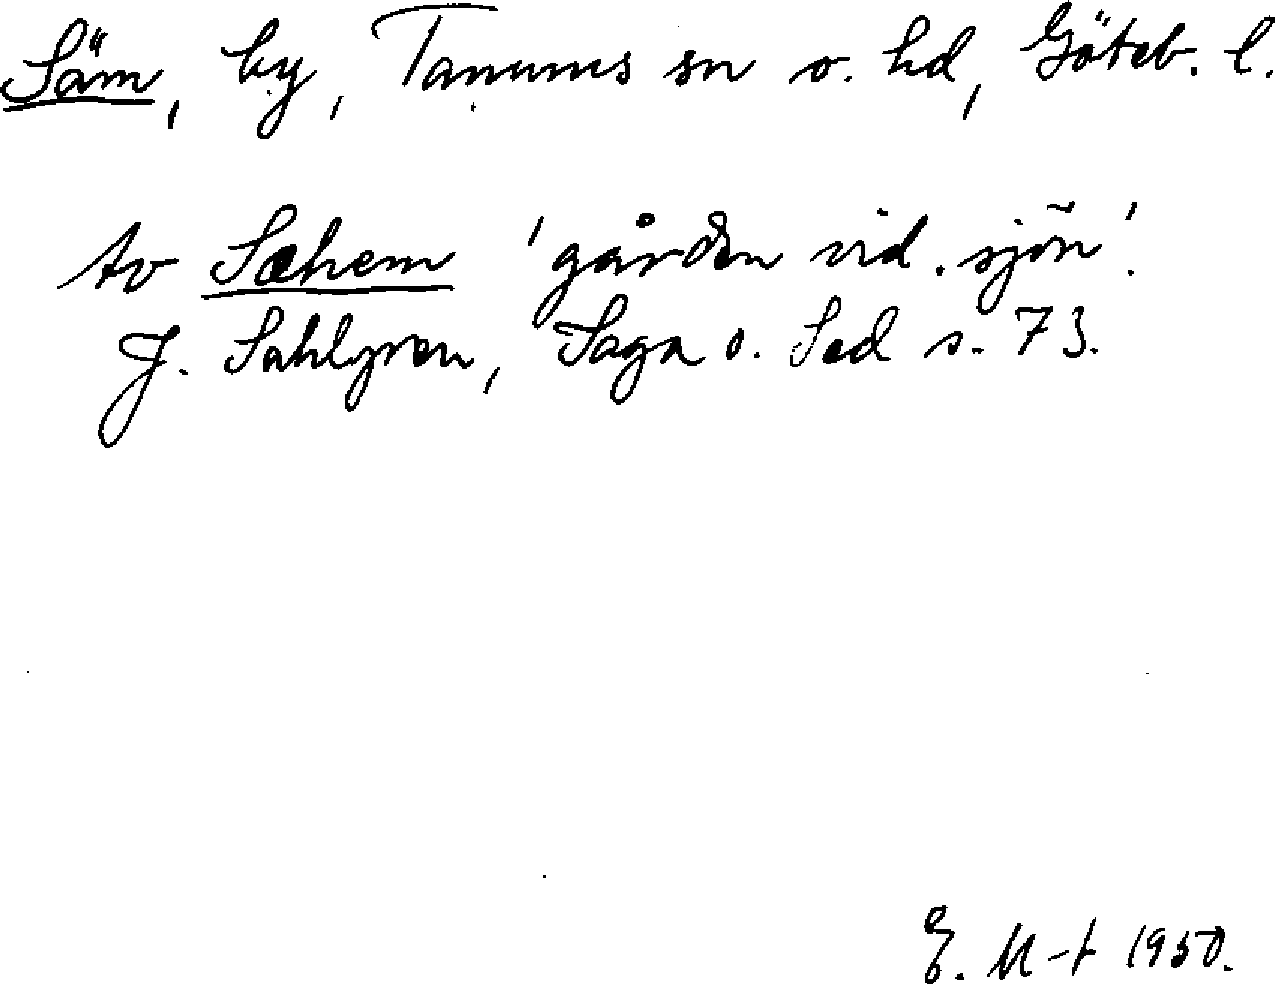 Säm, by, Tanums sn o. hd, Göteb. l.
Av Sæhem 'gården vid sjön'.
J. Sahlgren, Saga o. Sed s. 73.
E. M-t 1950.